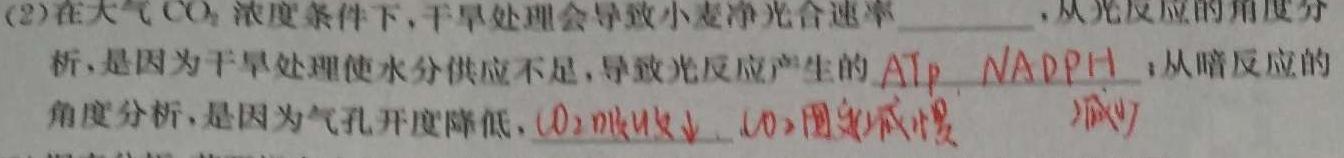 (2)在大气CO₂浓度条件下,干旱处理会导致小麦净光合速率________,从光反应的角度分
析,是因为干旱处理使水分供应不足,导致光反应产生的 ATP NADPH ;从暗反应的
减少
角度分析,是因为气孔开度降低, CO₂吸收↓ CO₂固定减慢